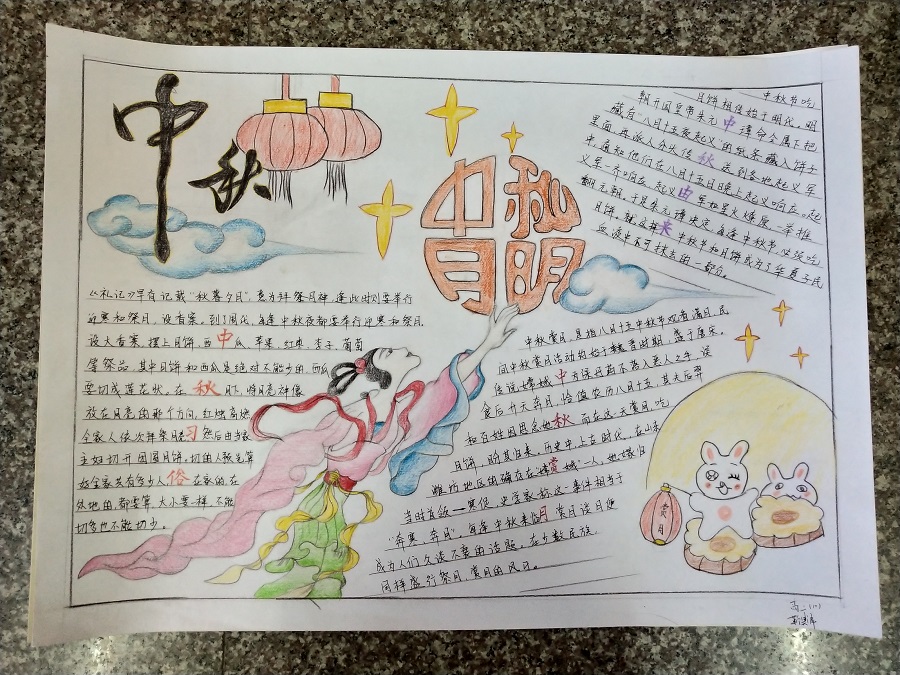 中秋
中秋
月明
《礼记》早有记载“秋暮夕月”，意为拜祭月神，逢此时则要举行
迎寒和祭月，设香案。到了周代，每逢中秋夜都要举行迎寒和祭月。
设大香案，摆上月饼、西中瓜、苹果、红枣、李子、葡萄
等祭品，其中月饼和西瓜是绝对不能少的。西瓜
要切成莲花状。在秋月下，将月亮神像
放在月亮的那个方向，红烛高燃
全家人依次拜祭月亮习然后由当家
主妇切开团圆月饼。切的人预先算
好全家共有多少人俗在家的，在
外地的都要算，大小要一样，不能
切多也不能切少。
中秋节吃
月饼相传始于明代。明
朝开国皇帝朱元中璋命令属下把
藏有“八月十五夜起义”的纸条藏入饼子
里面，再派人分头传秋送到各地起义军
中，通知他们在八月十五日晚上起义响应
义军一齐响应，起义由军如星火燎原，一举推
翻元朝。于是朱元璋决定，每逢中秋节必须吃
月饼。就这样来中秋节和月饼成为了华夏子民
血液中不可抹去的一部分
中秋赏月，是指八月十五中秋节观看满月，民
间中秋赏月活动约始于魏晋时期，盛于唐宋。
传说嫦娥中
食后升天奔月，恰值农历八月十五，其夫后羿
和百姓因思念她秋，而在这一天赏月，吃
月饼，盼其归来。历史中上古时代，在山东
潍坊地区的确存在“嫦赏娥”一人，她嫁
“奔寒，奔月”，每逢中秋来临月赏月谈月便
成为人们久谈不衰的话题。在少数民族
同样盛行祭月、赏月的风习。
赏月